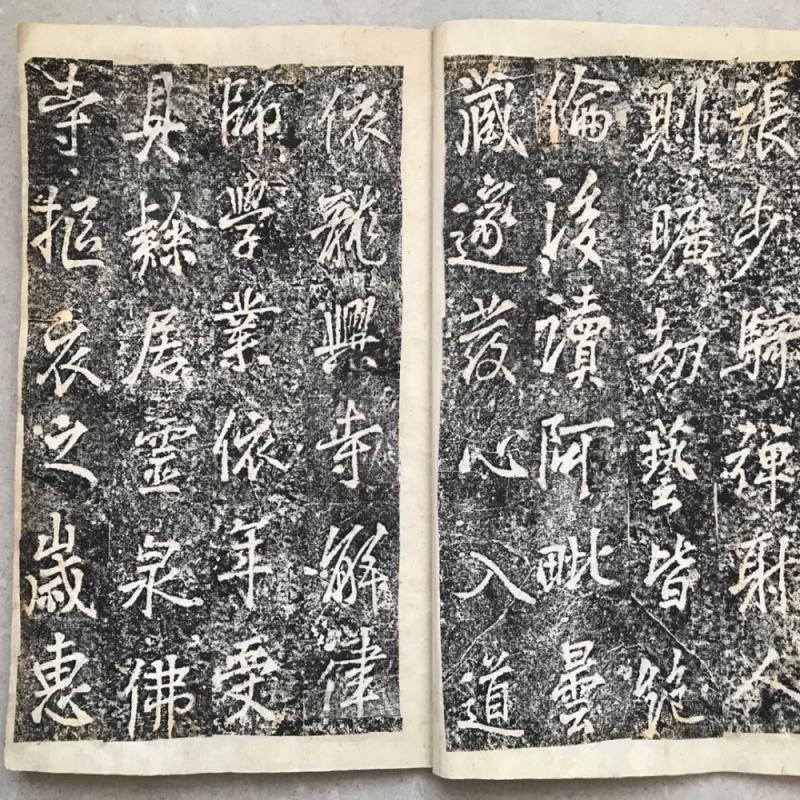 張步騎彈射人
則曠劫藝皆絶
倫後讀阿毗曇
藏遂發心入道
依龍興寺解律
師學業依年受
具隸居靈泉佛
寺摳衣之歲惠